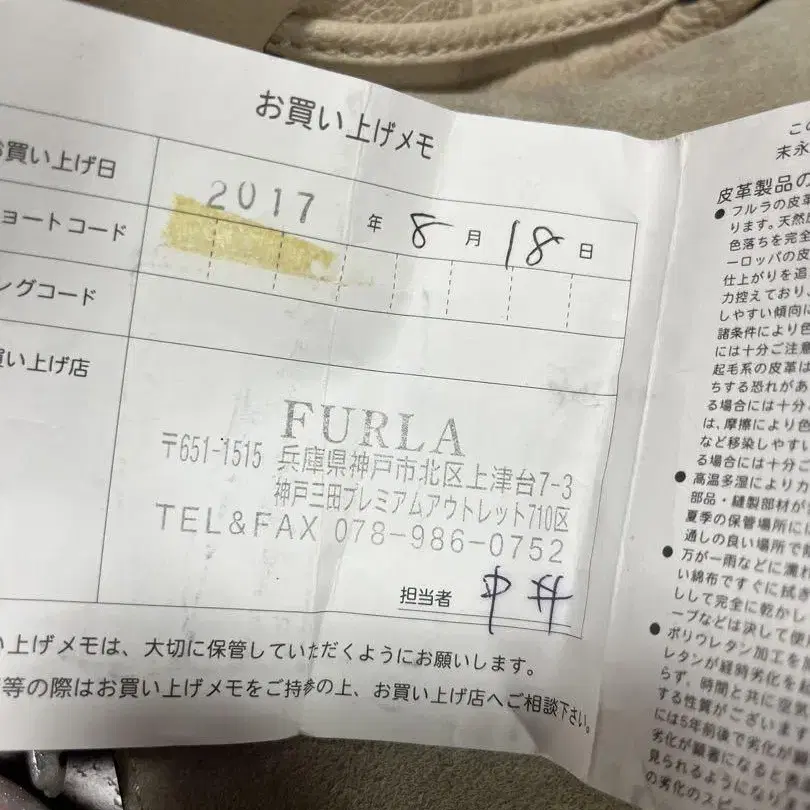 お買い上げメモ
お買い上げ日
2017 年 8 月 18 日
ョートコード
ングコード
買い上げ店
FURLA
〒651-1515 兵庫県神戸市北区上津台7-3
神戸三田プレミアムアウトレット710区
TEL&FAX 078-986-0752
担当者 中井
い上げメモは、大切に保管していただくようにお願いします。
等の際はお買い上げメモをご持参の上、お買い上げ店へご相談下さい。
この
末永
皮革製品の
● フルラの皮革
ります。天然
色落ちを完全
ーロッパの皮
仕上がりを追
力控えており、
しやすい傾向に
諸条件により色
には十分ご注意
起毛系の皮革は
ちする恐れがあ
る場合には十分
は、摩擦により色
など移染しやすい
る場合には十分ご
● 高温多湿によりカ
部品・縫製部材が
夏季の保管場所には
通しの良い場所で
● 万が一雨などに濡れ
い綿布ですぐに拭き
しして完全に乾かし
ープなどは決して使用
● ポリウレタン加工を
レタンが経時劣化を起
らず、時間と共に空気
する性質がございます
には5年前後で劣化が
劣化が顕著になると表
見られるようになり
の劣化のス